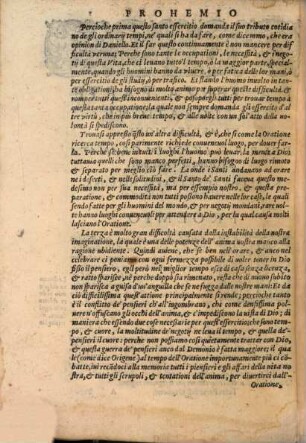 PROHEMIO
Percioche prima questo santo essercitio domanda il suo tributo cotidia
no de gli ordinarij tempi, ne' quali si ha da fare, come dicemmo, che era
opinion di Davielo. Et il far questo continuamente è non mancare per diffi-
cultà veruna; Perche sono tante le occupationi, le necessità, & i nego-
tij di questa Vita, che ci vengono tutto'l tempo, ò la maggior parte, special-
mente, quando gli huomini hanno da vivere, e per fatica delle lor mani, ò
per essercitio de gli studij, ò per traffico. Et stando l'huomo involto in tante
obligationi, ha bisogno di molt'animo per superar queste difficultà, &
romper tutti questi inconvenienti, & posposti tutti per trovar tempo à
questa santa occupatione; la quale non sempre domanda gli essercitij d'al
tre virtù, che in più breve tempo, & alle volte con un sol'atto della vo-
lontà si spediscono.
Trovasi appresso questo un'altra difficultà, & è, che si come la Oratione
ricerca tempo, così parimente richiede convenevol luogo, per dover far-
la. Perche se bene tutti i luoghi l'huomo può levar la mente à Dio
tuttavia quelli che sono manco perfetti, hanno bisogno di luogo rimoto
& separato per meglio farlo. La onde i Santi andavano ad orare
ne i deserti, & nelle solitudini, & il Santo de' Santi faceva questo me-
desimo non per sua necessità, ma per essempio nostro, & questa pre-
paratione, & commodità non tutti possono havere nelle lor case, le quali
sendo fatte per gli huomini del mondo, & per negotij mondani, rare vol-
te hanno luoghi convenevoli per attendere à Dio, per la qual causa molti
lasciano l'Oratione.
La terza è molto gran difficultà causata dalla instabilità della nostra
imaginatione, la quale è una delle potenze dell'anima nostra manco alla
ragione ubidiente. Quindi aviene, che se ben nell'orare, & ancor nel
celebrare ci poniamo con ogni fermezza possibile di voler tener in Dio
fisso il pensiero, egli però nel medesimo tempo esce di casa senza licenza,
& ratto sparisce, nè perche dapoi sia rimenato, resta che di nuovo subito
non sparisca à guisa d'un'anguilla che se ne fugge dalle nostre mani. Et da
ciò difficilissima quest'attione principalmente si rende; perche tanto
è il conflitto de' pensieri ch'all'ingombrano, che come densissima pol-
vere n'offuscano gli occhi dell'anima, & c'impediscono la vista di Dio; di
maniera che essendo due cose necessarie per questo essercitio che sono tem-
po, & cuore, la moltitudine de' negotij ne leva il tempo, & quella de'
pensieri il cuore: perche non possiamo così quietamente trattar con Dio,
& questa guerra de' pensieri anco dal Demonio è fatta maggiore; il qua
le (come dice Origene) al tempo dell'Oratione importunamente più ci com-
batte, ne riduce alla memoria tutti i pensieri e gli affari della vita no-
stra, & tutti gli scrupoli, & tentationi dell'anima, per divertirci dall'
Oratione.